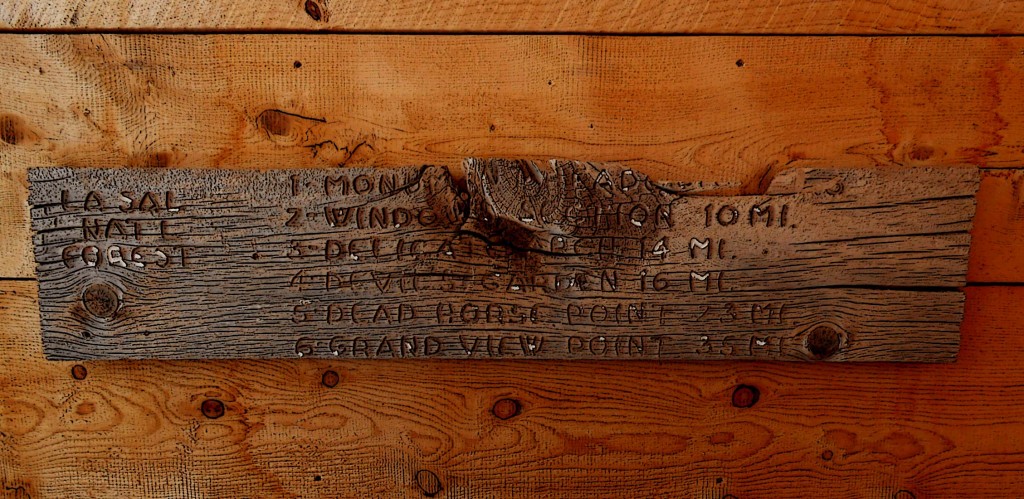 LA SAL
NATL
FOREST
1- MONU
2- WINDOW 10 MI.
3- DELICATE ARCH 14 MI.
4- DEVILS GARDEN 16 MI.
5- DEAD HORSE POINT 23 MI.
6- GRAND VIEW POINT 35 MI.